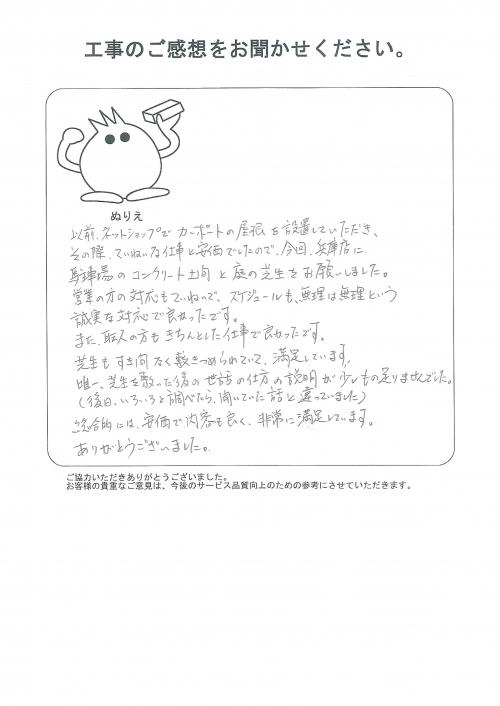 工事のご感想をお聞かせください。
ぬりえ
以前、ネットショップで カーポートの屋根を設置していただき、
その際、ていねいな仕事と安価でしたので、今回、兵庫店に
駐車場のコンクリート土間と庭の芝生をお願いしました。
営業の方の対応もていねいで、スケジュールも、無理は無理という
誠実な対応で良かったです。
また、職人の方もきちんとした仕事で良かったです。
芝生もすき間なく敷きつめられていて、満足しています。
唯一、芝生を敷いた後の世話の仕方の説明が少しもの足りませんでした。
(後日、いろいろと調べたら、聞いていた話と違っていました)
総合的には、安価で内容も良く、非常に満足しています。
ありがとうございました。
ご協力いただきありがとうございました。
お客様の貴重なご意見は、今後のサービス品質向上のための参考にさせていただきます。